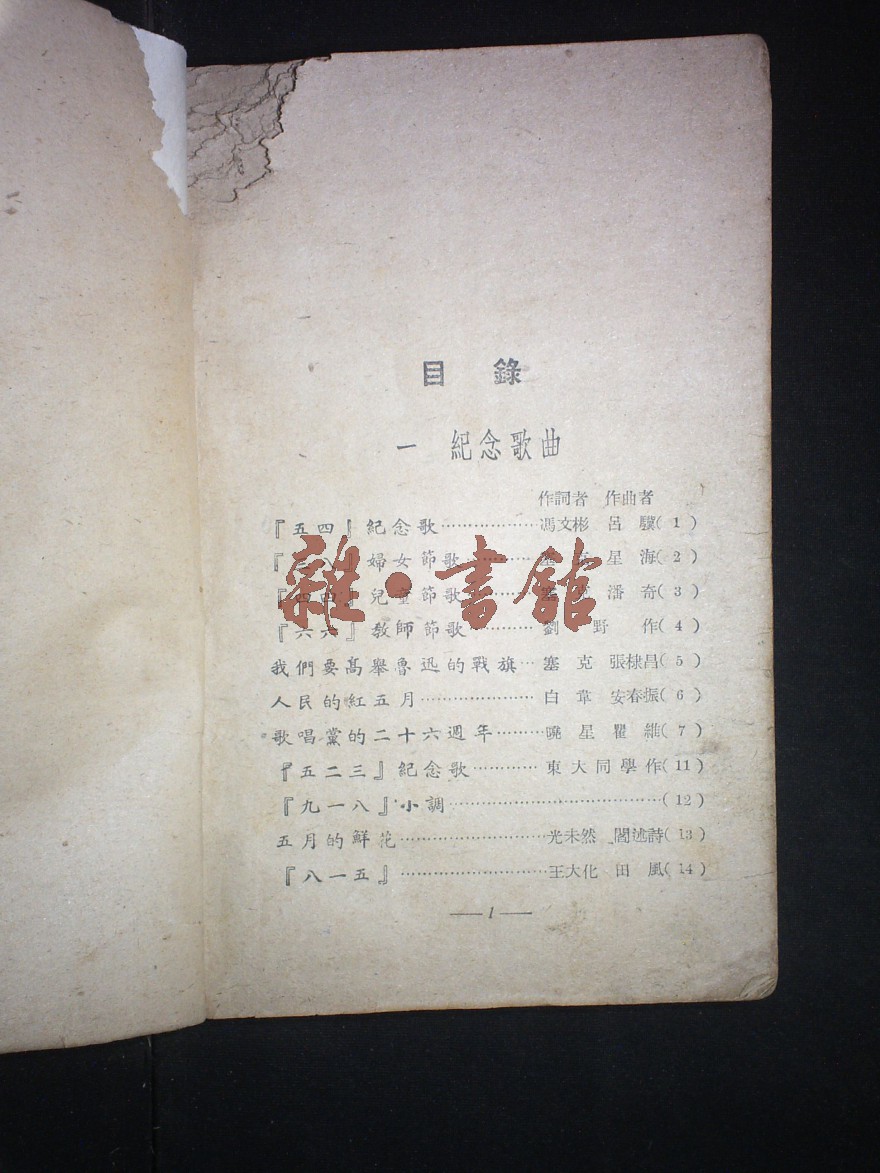 目錄
一 紀念歌曲
作詞者 作曲者
『五四』紀念歌………………馮文彬 呂驥( 1 )
婦女節歌 星海( 2 )
兒童節歌 塞克 潘奇( 3 )
『六六』教師節歌…………劉野作( 4 )
我們要高舉魯迅的戰旗…塞克 張棣昌( 5 )
人民的紅五月………………白韋 安春振( 6 )
歌唱黨的二十六週年………曉星 瞿維( 7 )
『五二三』紀念歌…………東大同學作(11)
『九一八』小調……………………………(12)
五月的鮮花…………………光未然 閻述詩(13)
『八一五』…………………王大化 田風(14)
—1—
雜·書館